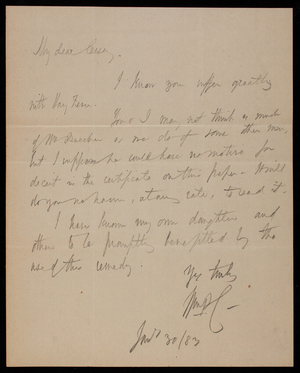 My dear Casey,
I know you suffer greatly
with Hay Fever.
You & I may not think as much
of Mr Beecher as we do of some other men,
but I suppose he could have no motive for
deceit in the certificate on this paper. It will
do you no harm, at any rate, to read it.
I have known my own daughter and
others to be promptly benefitted by the
use of this remedy.
Yrs truly
Jan'y 30/83